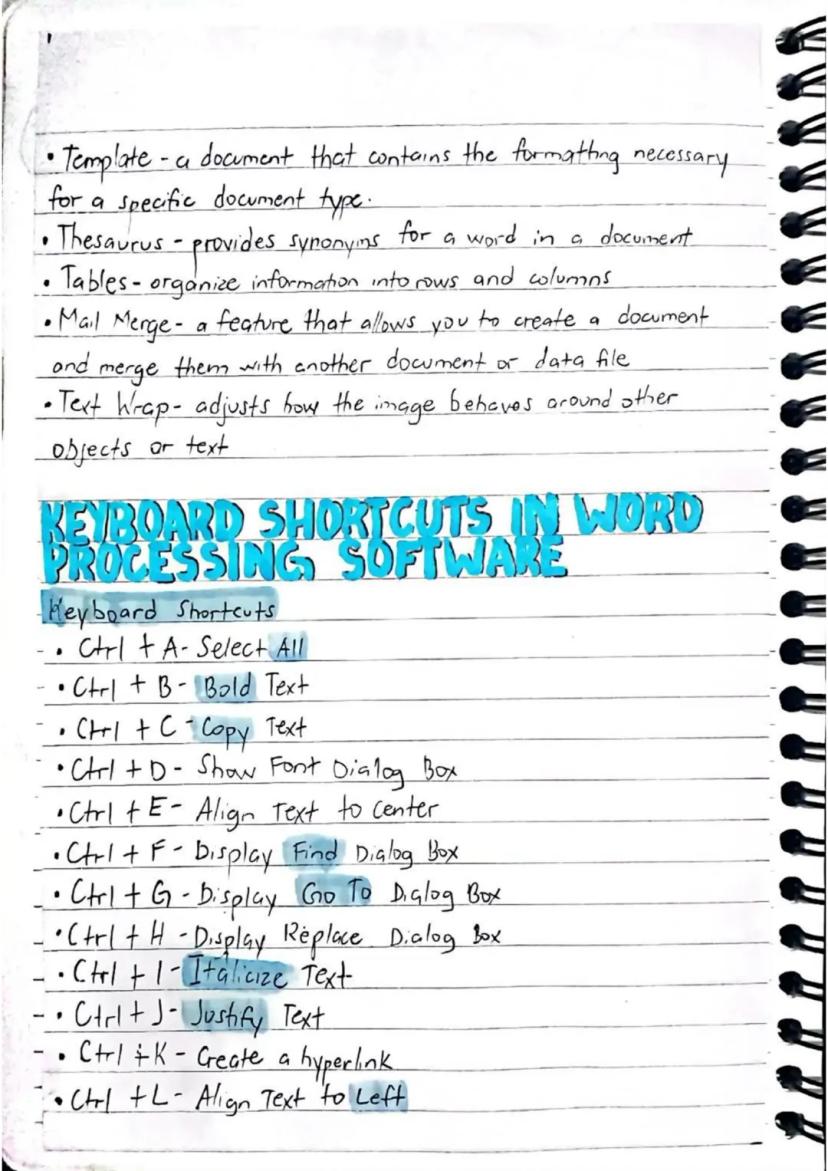 • Template - a document that contains the formathng necessary
for a specific document type.
• Thesaurus - provides synonyms for a word in a document
• Tables - organize information into rows and columns
• Mail Merge - a feature that allows you to create a document
and merge them with another document or data file
• Text Wrap - adjusts how the image behaves around other
objects or text
KEYBOARD SHORTCUTS IN WORD
PROCESSING SOFTWARE
Keyboard Shortcuts
• Ctrl + A - Select All
• Ctrl + B - Bold Text
• Ctrl + C - Copy Text
• Ctrl + D - Show Font Dialog Box
• Ctrl + E - Align Text to center
• Ctrl + F - Display Find Dialog Box
• Ctrl + G - Display Go To Dialog Box
• Ctrl + H - Display Replace Dialog Box
• Ctrl + I - Italicize Text
• Ctrl + J - Justify Text
• Ctrl + K - Create a hyperlink
• Ctrl + L - Align Text to Left